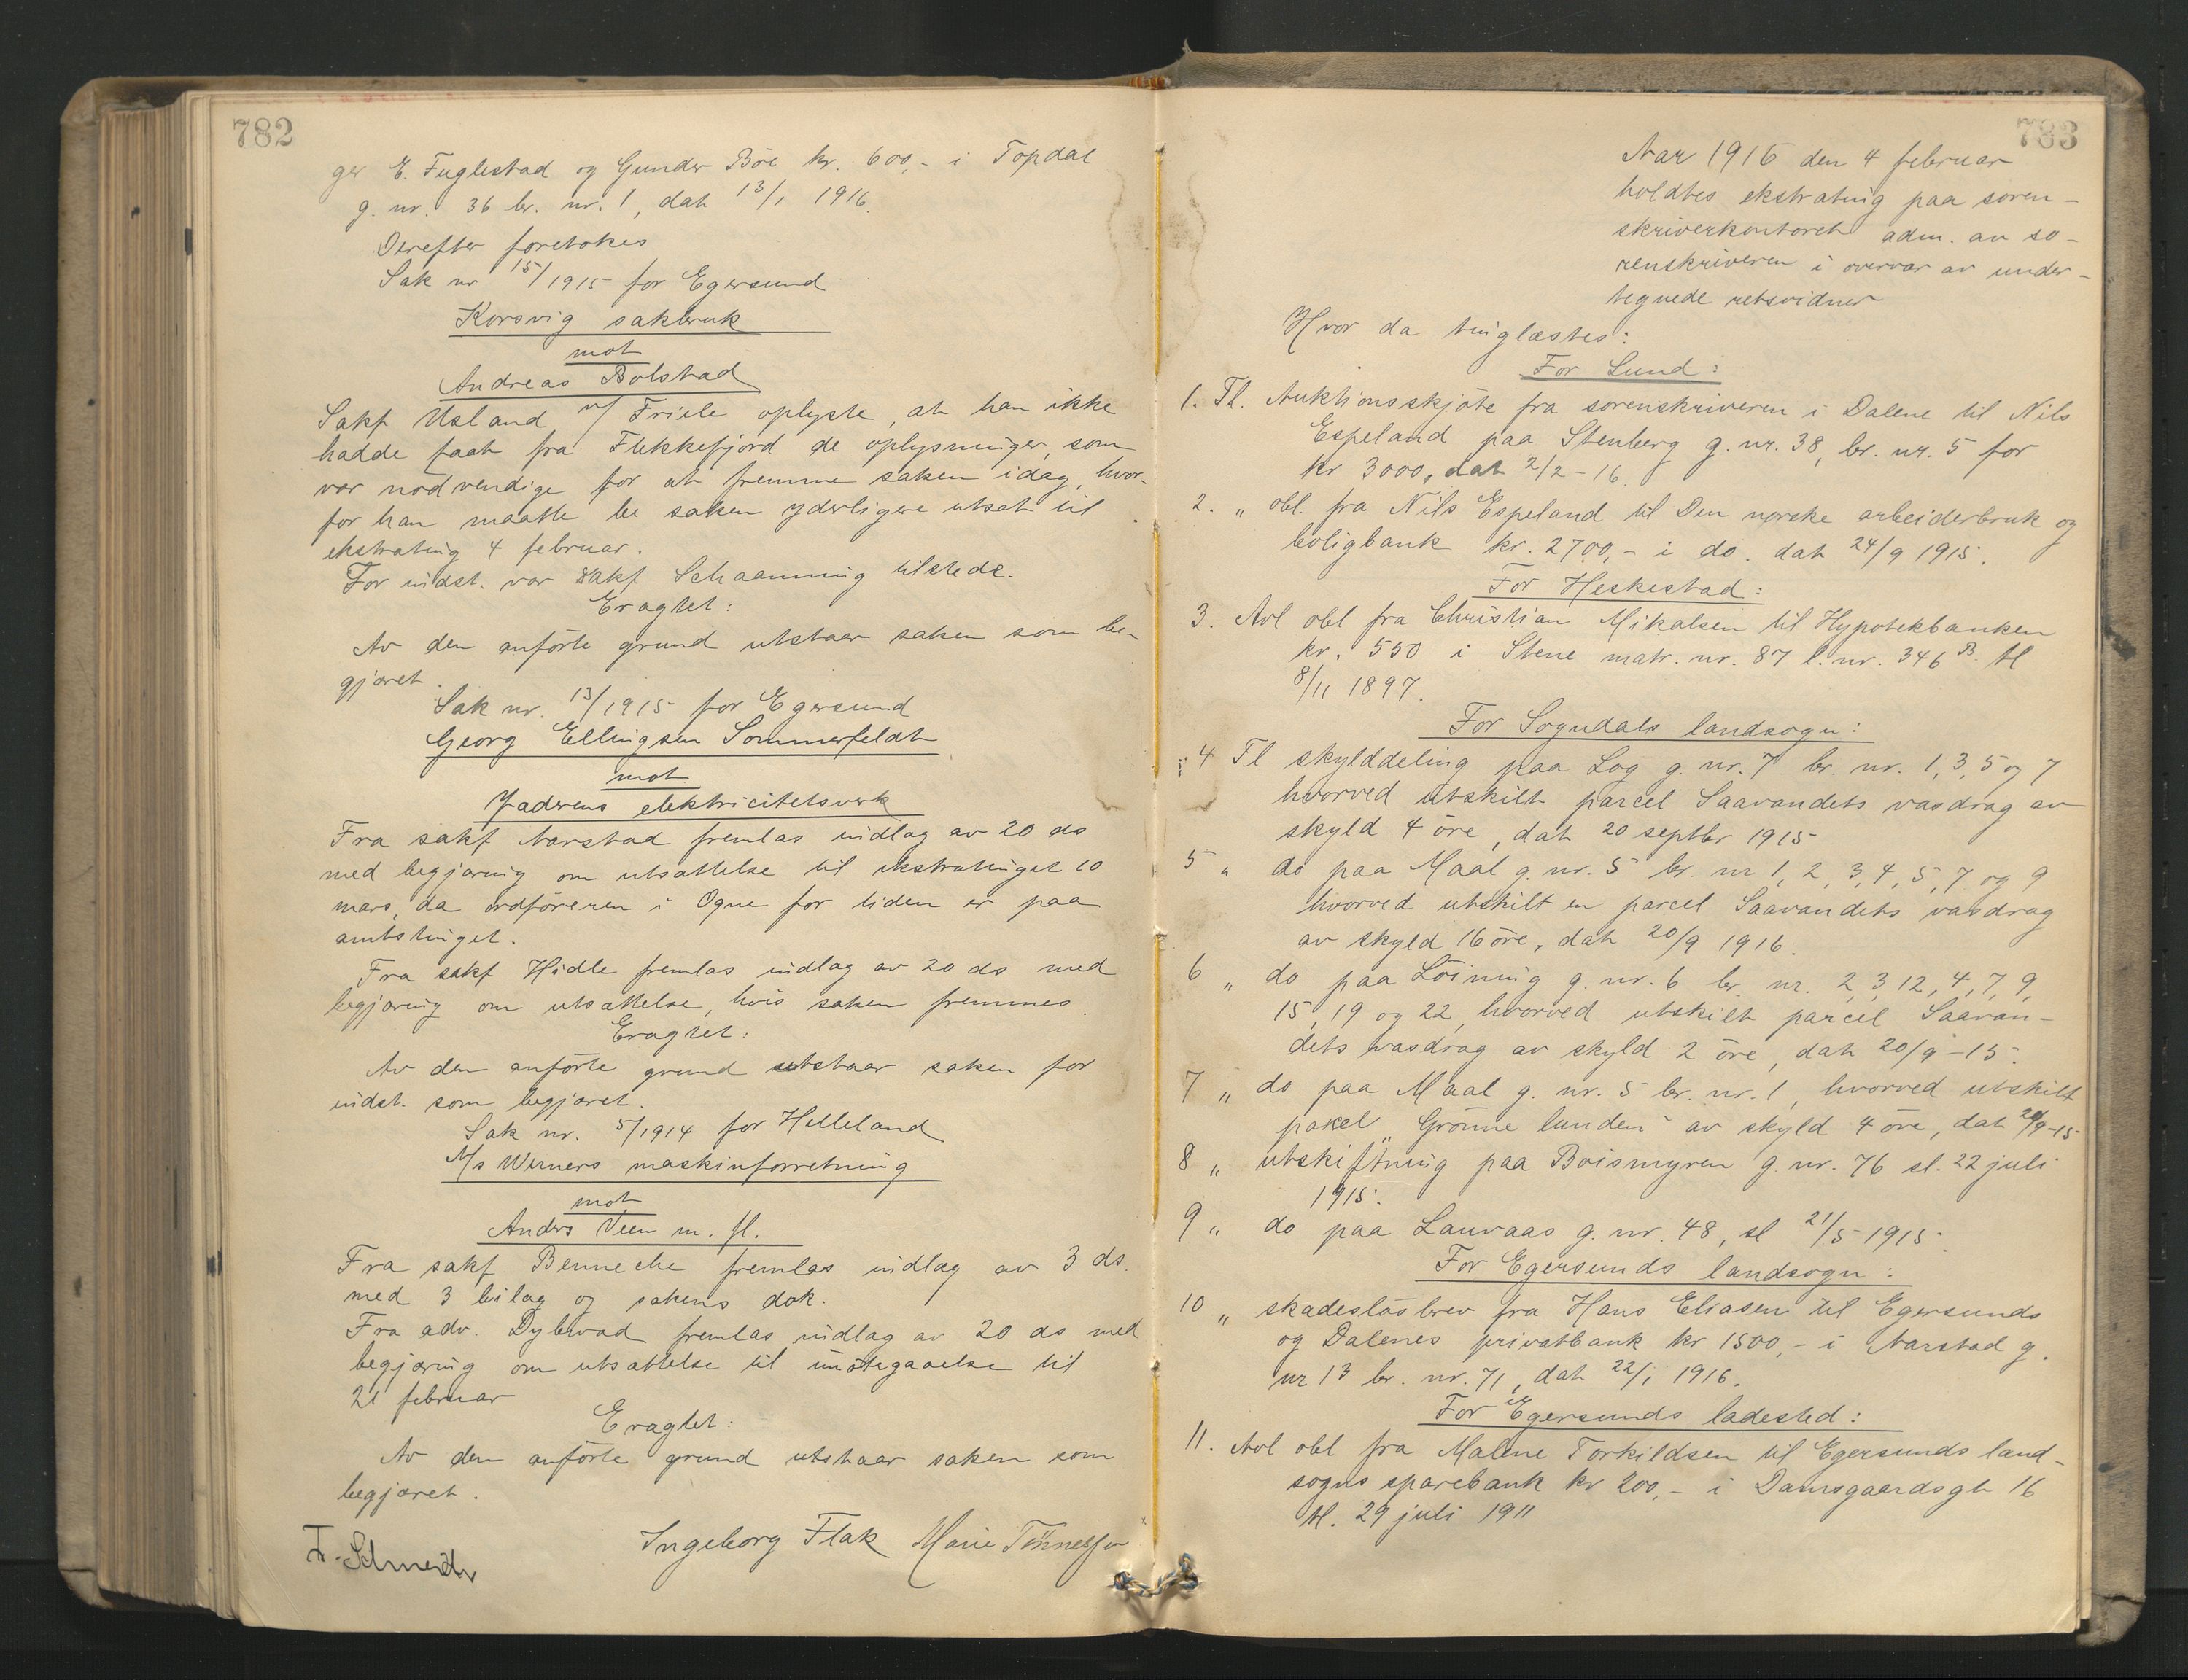 782
ger E. Fuglestad og Gunder Böe kr. 600,- i Topdal
g. nr. 36 br. nr. 1, dat 13/1 1916.
Derefter foretokes
Sak nr 15/1915 for Egersund
Korsvig sakbruk
mot
Andreas Bolstad
Sakf Usland v/ Friele oplyste, at han ikke
hadde faat fra Flekkefjord de oplysninger, som
var nödvendige for at fremme saken idag, hvor-
for han maatte be saken yderligere utsat til
ekstrating 4 februar.
For indst. var sakf Schaanning tilstede.
Eragtet:
Av den anförte grund utstaar saken som be-
gjæret.
Sak nr. 13/1915 for Egersund
Georg Ellingsen Sommerfeldt
mot
Jæderens elektricitetsverk
Fra sakf Aarstad fremlas indlæg av 20 ds
med begjæring om utsættelse til ekstratinget 10
mars, da ordföreren i Ogne for tiden er paa
amtstinget.
Fra sakf Hidle fremlas indlæg av 20 ds med
begjæring om utsættelse, hvis saken fremmes.
Eragtet:
Av den anförte grund utstaar saken for
indst. som begjæret.
Sak nr. 5/1914 for Helleland
A/s Werners maskinforretning
mot
Anders Veen m. fl.
Fra sakf Benneche fremlas indlæg av 3 ds.
med 3 bilag og sakens dok.
Fra adv. Dybwad fremlas indlæg av 20 ds med
begjæring om utsættelse til imötegaaelse til
21 februar
Eragtet:
Av den anförte grund utstaar saken som
begjæret.
Ingeborg Flak Marie Tönnessen
783
Aar 1916 den 4 februar
holdtes ekstrating paa soren-
skriverkontoret adm. av so-
renskriveren i overvær av under-
tegnede retsvidner
Hvor da tinglæstes:
For Lund:
1. Tl. Auktionsskjöte fra sorenskriveren i Dalene til Nils
Espeland paa Stenberg g. nr. 38, br. nr. 5 for
kr 3000, dat 2/2-16.
2. „ obl. fra Nils Espeland til Den norske arbeiderbruk og
boligbank kr. 2700,- i do. dat 24/9 1915.
For Heskestad:
3. Avl obl fra Christian Mikalsen til Hypotekbanken
kr. 550 i Stene matr. nr. 87 l. nr. 346 B. tl
8/11 1897.
For Sogndals landsogn:
4 Tl skylddeling paa Log g. nr. 7 br. nr. 1, 3, 5 og 7
hvorved utskilt parcel Saavandets vasdrag av
skyld 4 öre, dat 20 septbr 1915
5 „ do paa Maal g. nr. 5 br. nr 1, 2, 3, 4, 5, 7 og 9
hvorved utskilt en parcel Saavandets vasdrag
av skyld 16 öre, dat 20/9 1916.
6 „ do paa Löining g. nr. 6 br. nr. 2, 3, 12, 4, 7, 9,
15, 19 og 22, hvorved utskilt parcel Saavan-
dets vasdrag av skyld 2 öre, dat 20/9-15.
7 „ do paa Maal g. nr. 5 br. nr. 1, hvorved utskilt
pakel „Grönne lunden" av skyld 4 öre, dat 20/9-15
8 „ utskiftning paa Boismyren g. nr. 76 sl. 22 juli
1915.
9 „ do paa Lauvaas g. nr. 48, sl 21/5-1915.
For Egersunds landsogn:
10 „ skadeslösbrev fra Hans Eliasen til Egersunds
og Dalenes privatbank kr 1500,- i Aarstad g.
nr 13 br. nr. 71, dat 22/1 1916.
For Egersunds ladested:
11. Avl obl fra Malene Torkildsen til Egersunds land-
sogns sparebank kr 200,- i Damsgaardsgt 16
tl. 29 juli 1911